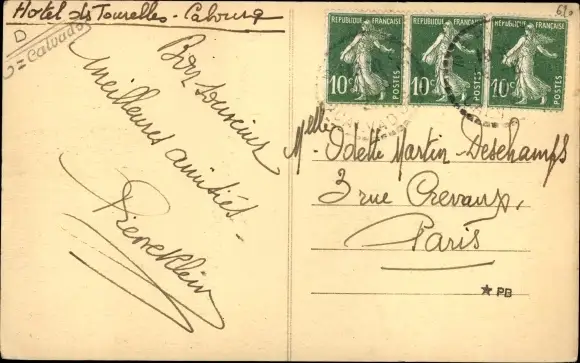 Hotel ds Tourelles - Cabourg
D
Calvados
Bon souvenir
meilleures amitiés -
Pierre Klein
RÉPUBLIQUE FRANÇAISE
10c
POSTES
RÉPUBLIQUE FRANÇAISE
10c
POSTES
RÉPUBLIQUE FRANÇAISE
10c
POSTES
CALVADOS
Melle Odette Martin-Deschamps
3 rue Crevaux,
Paris
★ PB